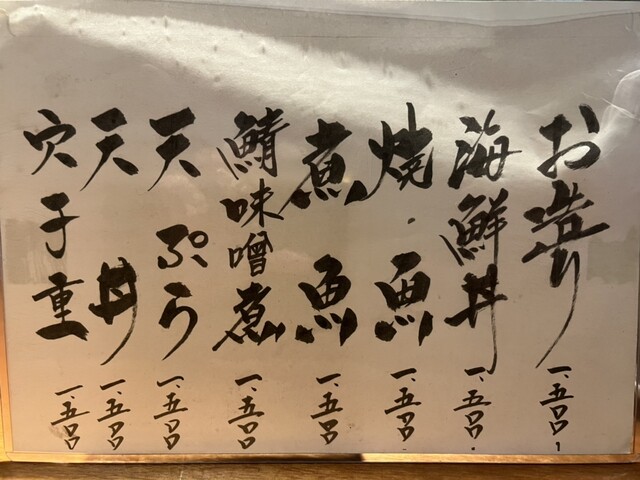 お造り 一、五〇〇
海鮮丼 一、五〇〇
焼魚 一、五〇〇
煮魚 一、五〇〇
鯖味噌煮 一、五〇〇
天ぷら 一、五〇〇
天丼 一、五〇〇
穴子重 一、五〇〇